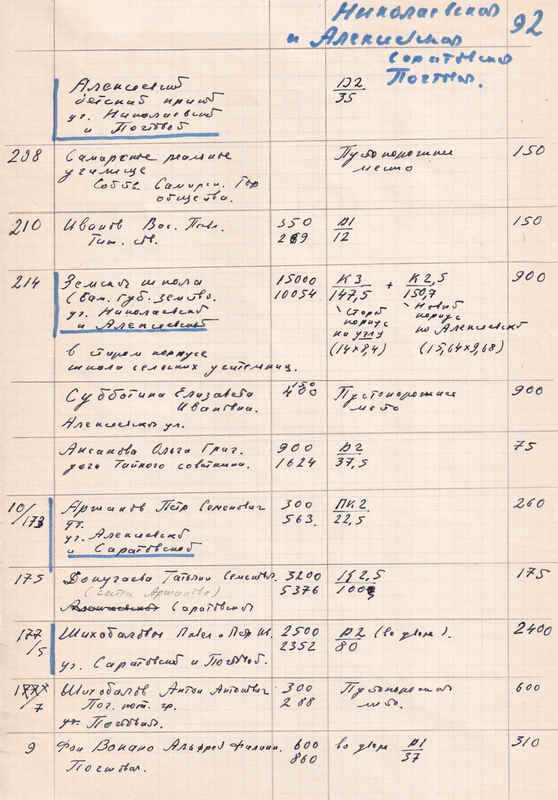 Николаевская 92
и Алексеевская
Саратовская
Почтовая.
Алексеевский Д2
детский приют 35
уг. Николаевской
и Почтовой
208 Самарское реальное Пустопорожнее 150
училище место
Собств. Самарск. Гор.
общества.
210 Иванов Вас. Павл. 350 Д1 150
Тит. св. 289 12
214 Земская школа 15000 К3 + К2,5 900
(Сам. Губ. Земство. 10054 147,5 150,7
уг. Николаевской Старый Новый
и Алексеевской корпус корпус
на углу по Алексеевской
в старом корпусе (14x9,4) (15,64x9,68)
школа сельских учительниц.
Субботина Елизавета 400 Пустопорожнее 900
Ивановна. место
Алексеевская ул.
Аксакова Ольга Григ. 900 Д2 75
дочь Тайного советника. 1624 37,5
10/173 Аржанов Петр Семенович 300 ПК2 260
563. 22,5
уг. Алексеевской
и Саратовской
175 Татьяна Семеновн. 3200 К2,5 175
(сестра Аржанова) 5376 100
Алексеевская Саратовская
177/5 Шихобаловы Павел и Петр Ив. 2500 Д2 (во дворе). 2400
2352 80
уг. Саратовской и Почтовой.
177/7 Шихобалов Антон Антонович 300 Пустопорожнее 600
Пот. поч. гр. 288 место.
ул. Почтовая.
9 Фон Вакано Альфред Филипп. 600 во дворе Д1 310
Почтовая. 860 37